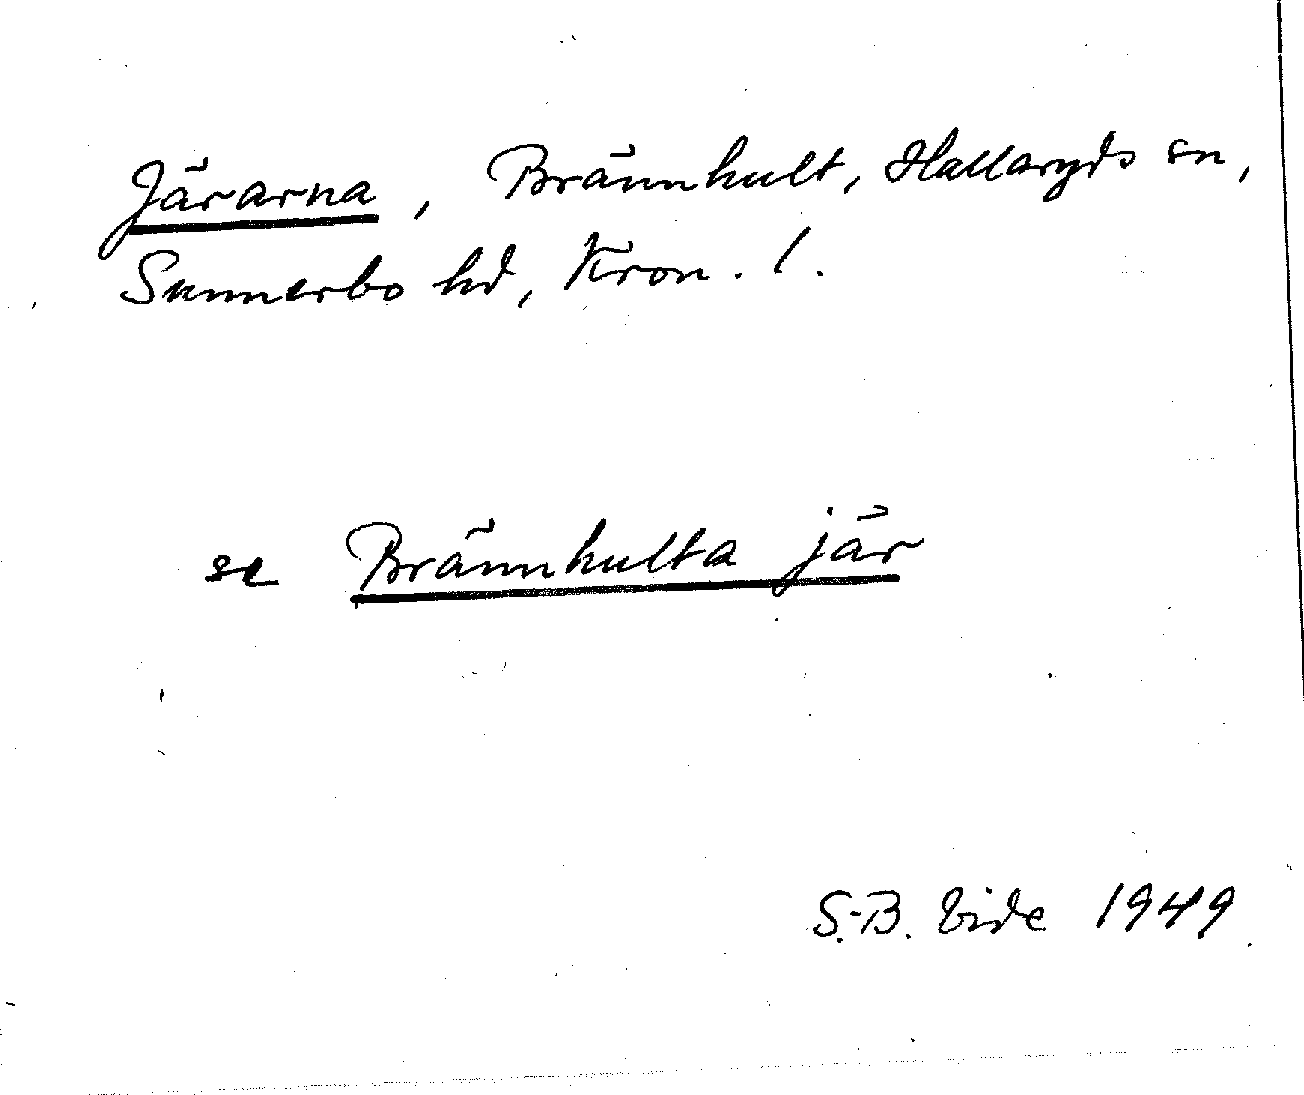 Järarna, Brännhult, Hallaryds sn,
Sunnerbo hd, Kron. l.
se Brännhulta jär
S.-B. Vide 1949